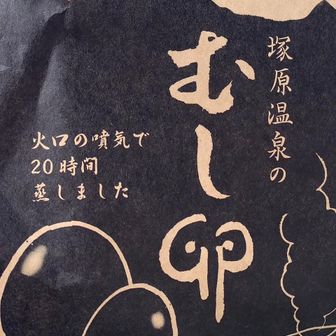 塚原温泉の
むし卵
火口の噴気で
20時間
蒸しました